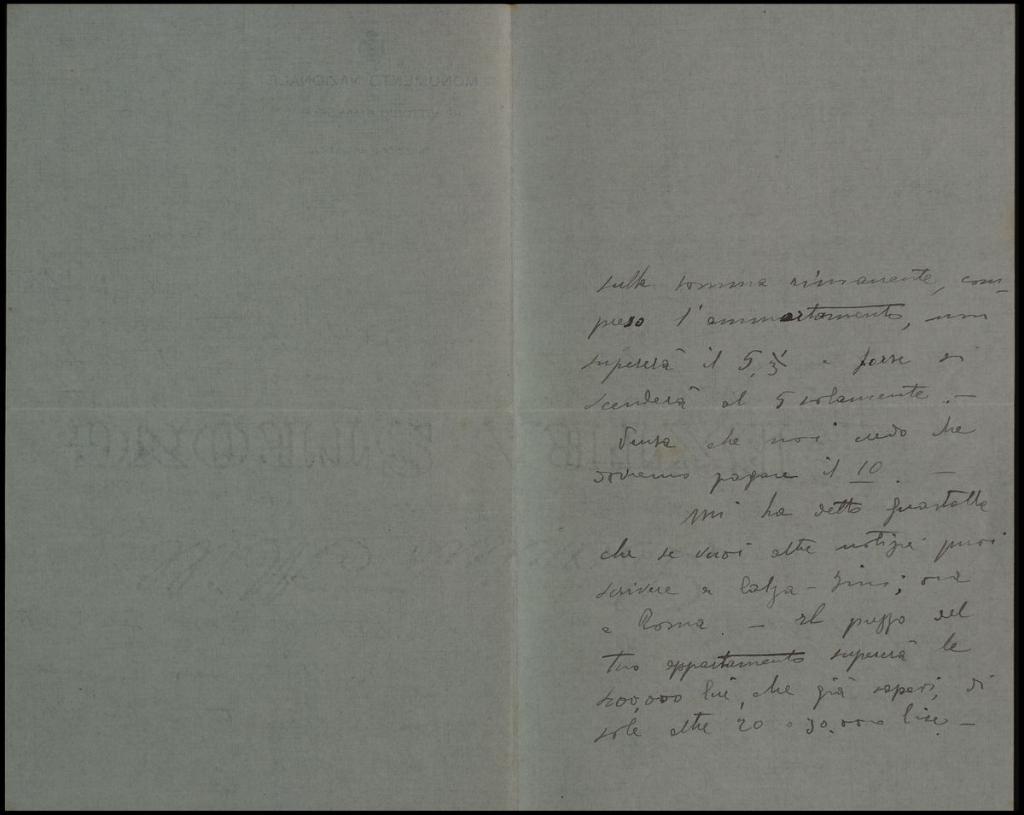 sulla somma rimanente, com-
preso l'ammortamento, non
supererà il 5,5 e forse si
scenderà al 5 solamente. -
Pensa che noi credo che
dovremo pagare il 10 -
Mi ha detto Guastalla
che se vuoi altre notizie puoi
scrivere a Calza-Bini; ora
a Roma. - Il prezzo del
tuo appartamento supererà le
200,000 lire, che già sapevi, di
sole altre 20 o 30.000 lire -